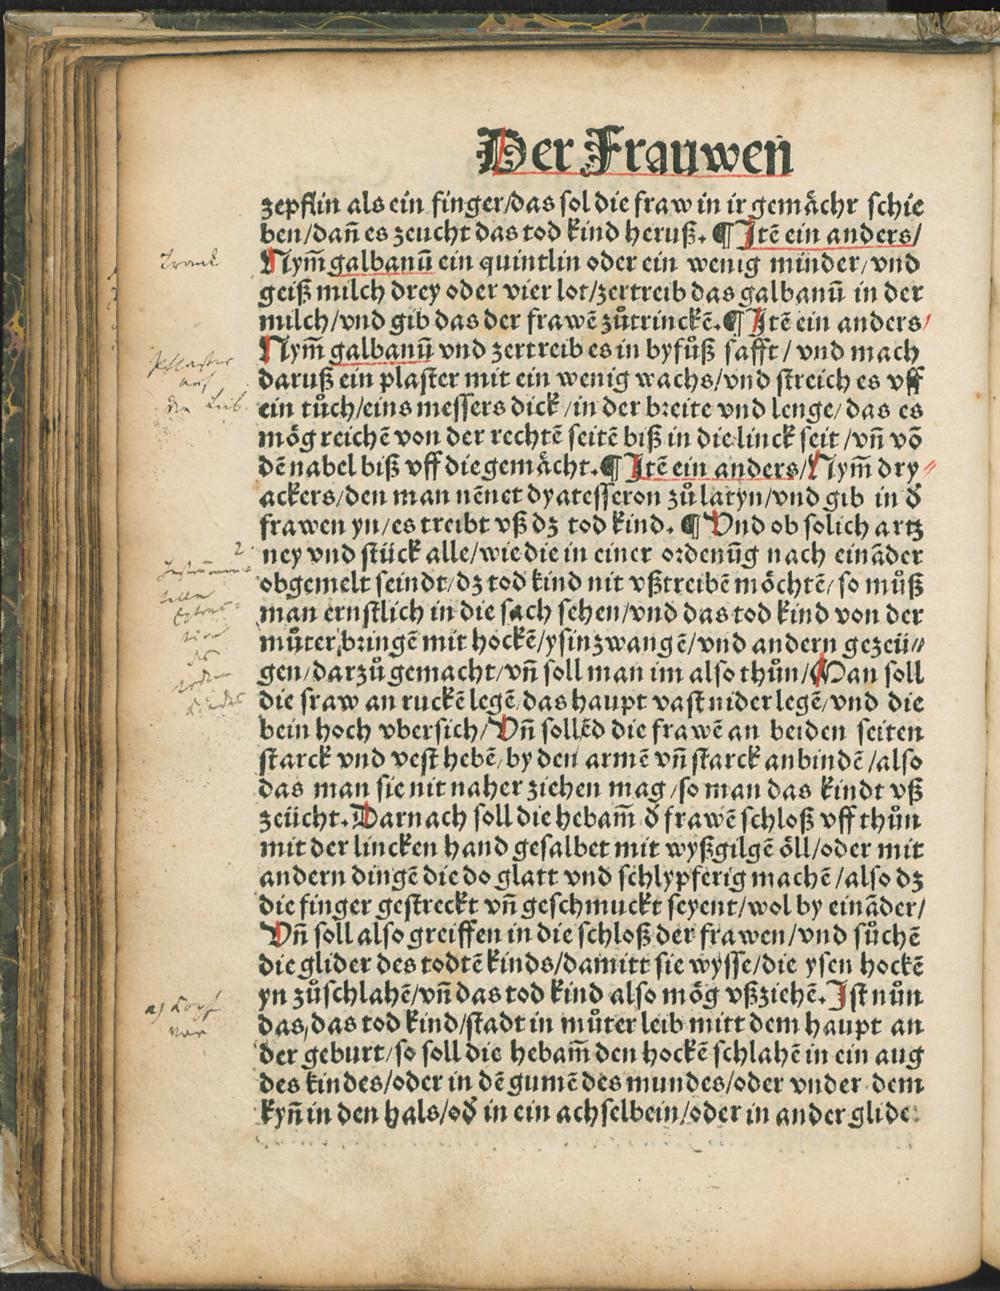 Der Frauwen
zepflin als ein finger/das sol die fraw in ir gemächt schie
ben/dañ es zeucht das tod kind heruß. ¶ Jtē ein anders/
Nym̄ galbanū ein quintlin oder ein wenig minder/vnd
geiß milch drey oder vier lot/zertreib das galbanū in der
milch/vnd gib das der frawē zůtrinckē. ¶ Jtē ein anders/
Nym̄ galbanū vnd zertreib es in byfůß safft/vnd mach
daruß ein plaster mit ein wenig wachs/vnd streich es vff
ein tůch/eins messers dick/in der breite vnd lenge/das es
mög reichē von der rechtē seitē biß in die linck seit/vñ vō
dē nabel biß vff die gemächt. ¶ Jtē ein anders/Nym̄ dry⸗
ackers/den man nēnet dyatesseron zů latyn/vnd gib in d̄
frawen yn/es treibt vß dz tod kind. ¶ Vnd ob solich artz
ney vnd stück alle/wie die in einer ordenūg nach eināder
obgemelt seindt/dz tod kind nit vßtreibē möchtē/so můß
man ernstlich in die sach sehen/vnd das tod kind von der
můter bringē mit hockē/ysinzwangē/vnd andern gezeü⸗
gen/darzů gemacht/vñ soll man im also thůn/Man soll
die fraw an ruckē legē/das haupt vast nider legē/vnd die
bein hoch vbersich/Vñ sollēd die frawē an beiden seiten
starck vnd vest hebē/by den armē vñ starck anbindē/also
das man sie nit naher ziehen mag/so man das kindt vß
zeücht. Darnach soll die hebam̄ d̄ frawē schloß vff thůn
mit der lincken hand gesalbet mit wyßgilgē öll/oder mit
andern dingē die do glatt vnd schlypferig machē/also dz
die finger gestreckt vñ geschmuckt seyent/wol by eināder/
Vñ soll also greiffen in die schloß der frawen/vnd sůchē
die glider des todtē kinds/damitt sie wysse/die ysen hockē
yn zůschlahē/vñ das tod kind also mög vßziehē. Jst nůn
das/das tod kind/stadt in můter leib mitt dem haupt an
der geburt/so soll die hebam̄ den hockē schlahē in ein aug
des kindes/oder in dē gumē des mundes/oder vnder dem
kyñ in den hals/od̄ in ein achselbein/oder in ander glide
Trank
Pflaster
auf
den Leib
2
der
a) Kopf
vor